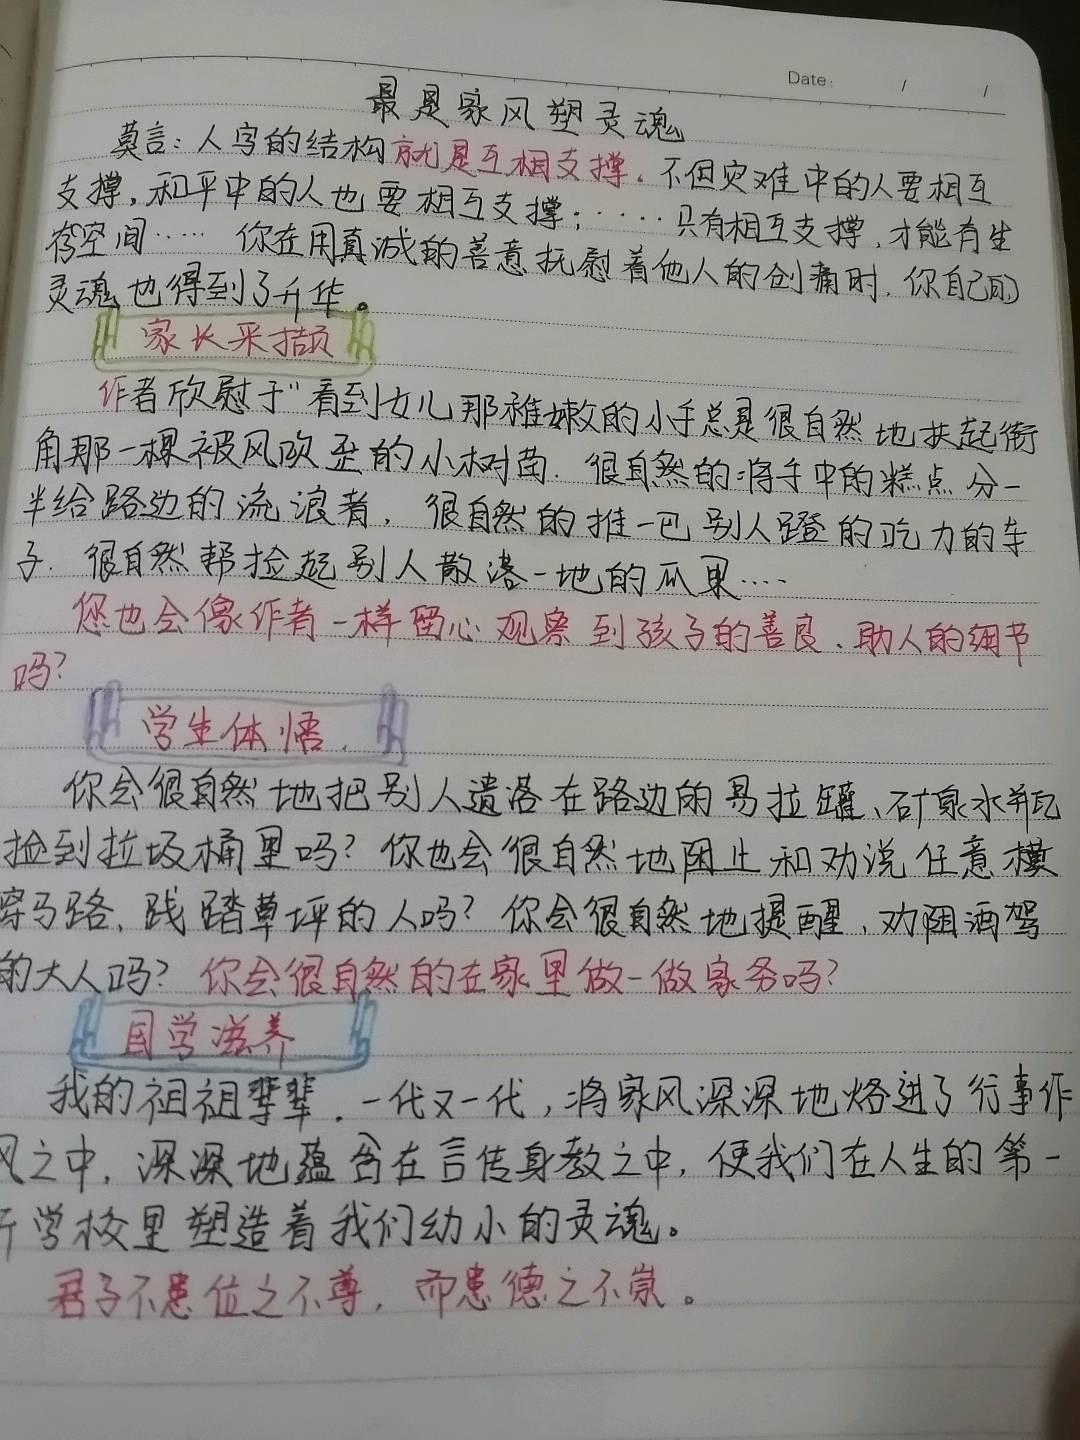 Date: / /
最是家风塑灵魂
莫言：人字的结构就是互相支撑。不但灾难中的人要相互
支撑，和平中的人也要相互支撑；……只有相互支撑，才能有生
存空间…… 你在用真诚的善意抚慰着他人的创痛时，你自己的
灵魂也得到了升华。
家长采撷
作者欣慰于"看到女儿那稚嫩的小手总是很自然地扶起街
角那一棵被风吹歪的小树苗．很自然的将手中的糕点分一
半给路边的流浪者，很自然的推一把别人蹬的吃力的车
子．很自然帮捡起别人散落一地的瓜果……
您也会像作者一样留心观察到孩子的善良、助人的细节
吗？
学生体悟．
你会很自然地把别人遗落在路边的易拉罐、矿泉水瓶
捡到垃圾桶里吗？你也会很自然地阻止和劝说任意横
穿马路、践踏草坪的人吗？你会很自然地提醒、劝阻酒驾
的大人吗？你会很自然的在家里做一做家务吗？
国学滋养
我的祖祖辈辈．一代又一代，将家风深深地烙进了行事作
风之中，深深地蕴含在言传身教之中，使我们在人生的第一
所学校里塑造着我们幼小的灵魂。
君子不患位之不尊，而患德之不崇。